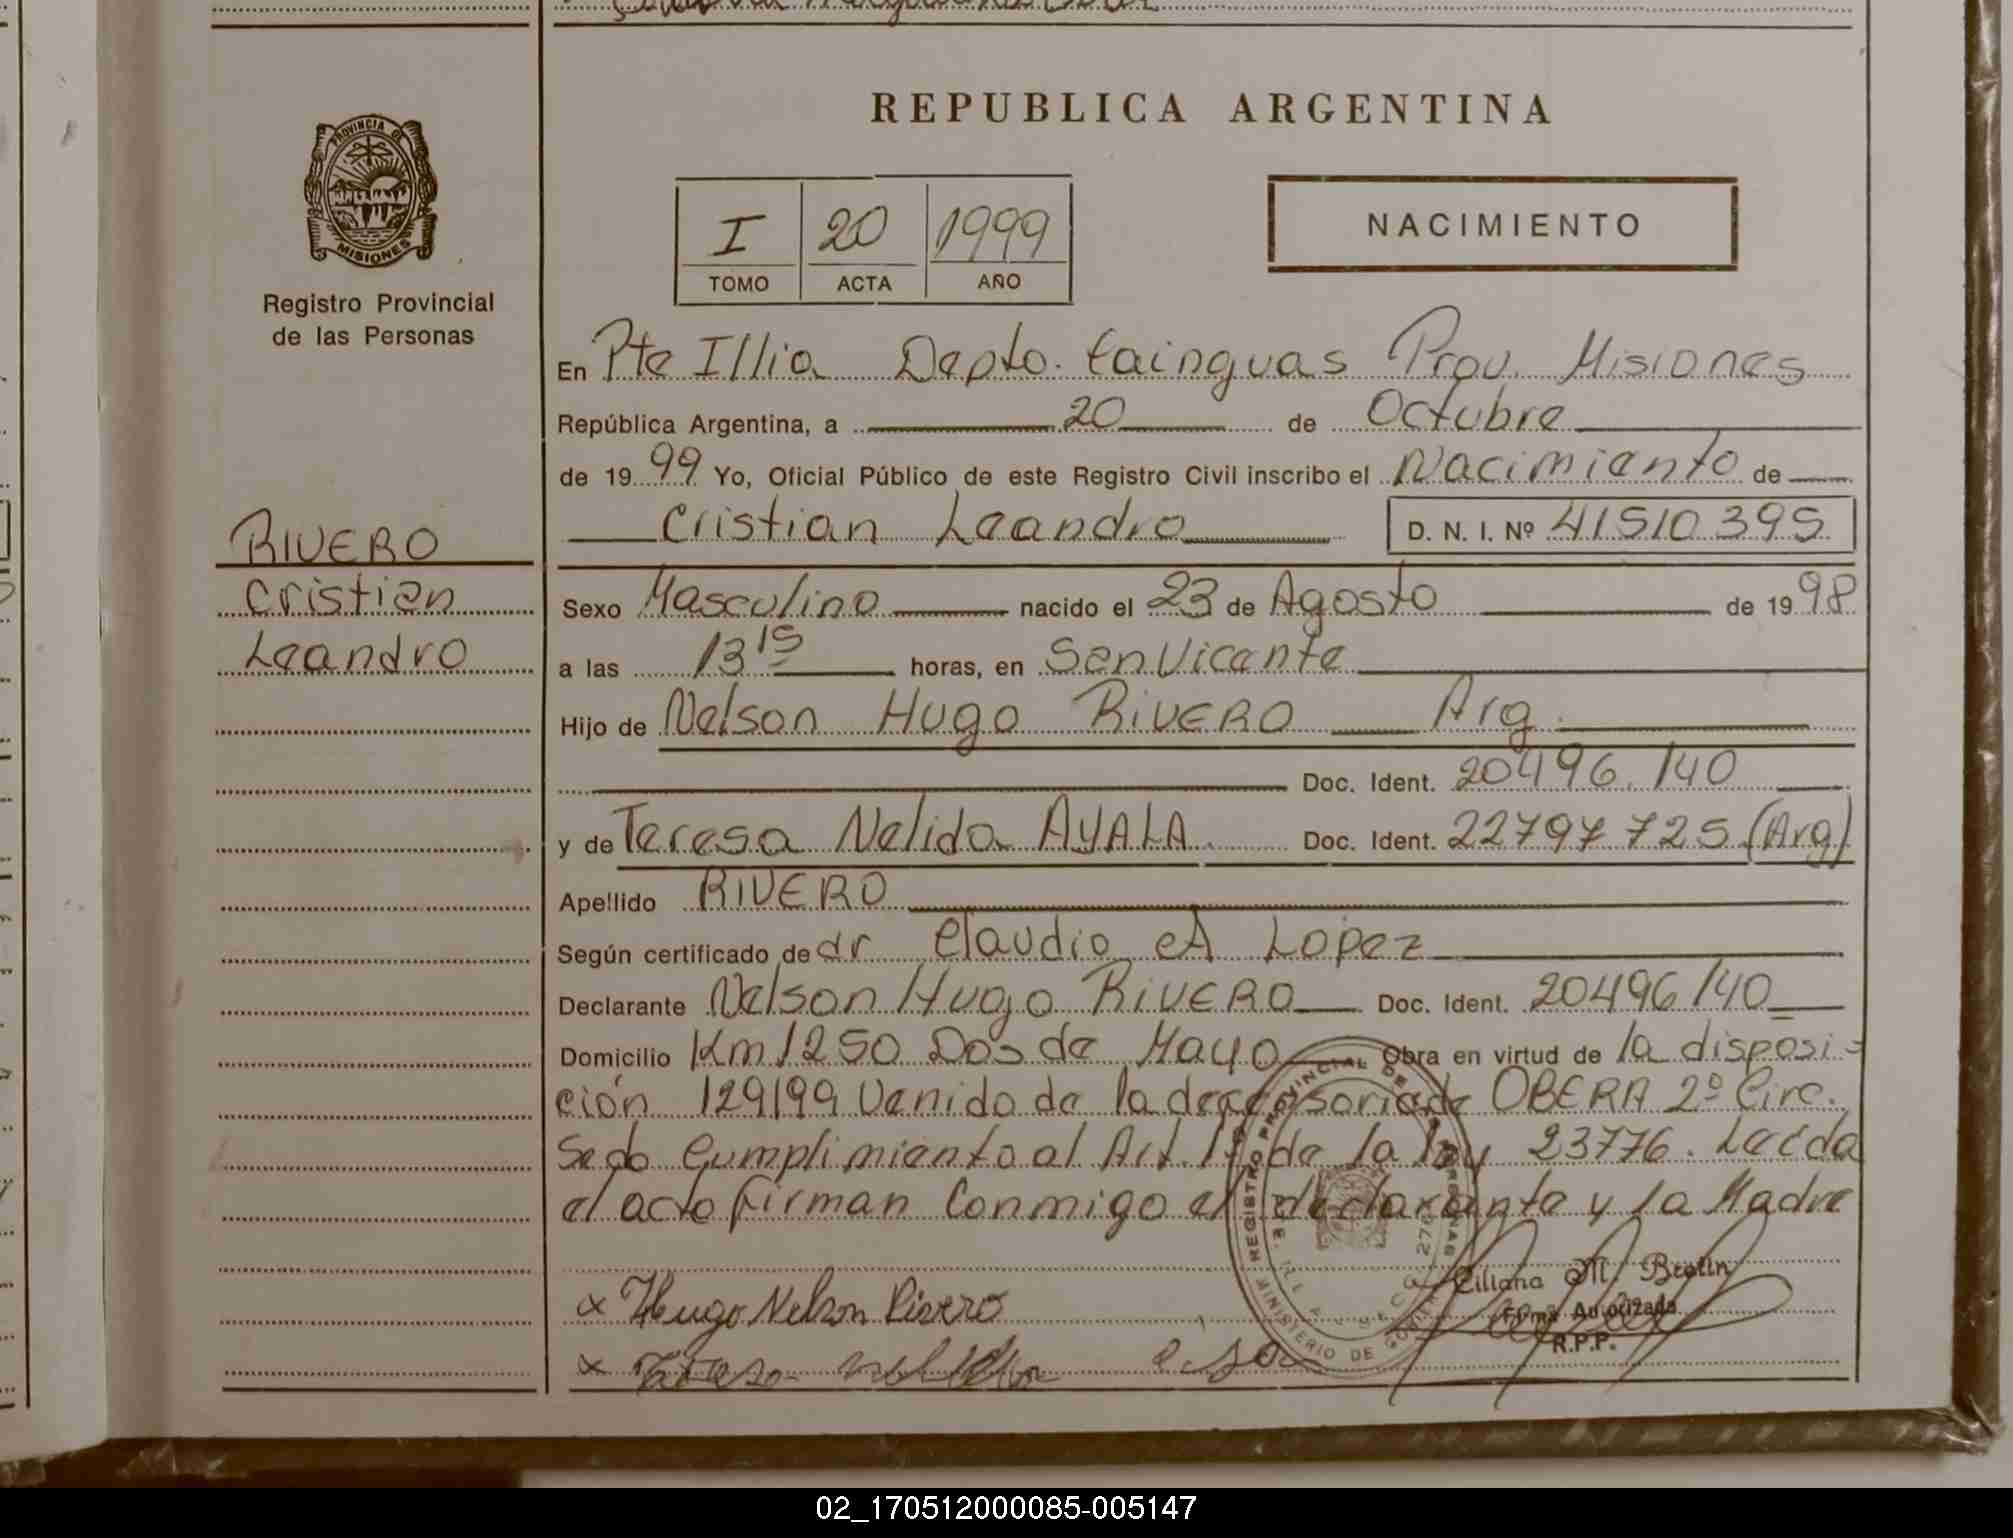 REPUBLICA ARGENTINA
PROVINCIA DE MISIONES
Registro Provincial
de las Personas
I 20 1999
TOMO ACTA AÑO
NACIMIENTO
RIVERO
Cristian
Leandro
En Pte Illia Depto. Cainguas Prov. Misiones
República Argentina, a 20 de Octubre
de 1999 Yo, Oficial Público de este Registro Civil inscribo el Nacimiento de
Cristian Leandro D. N. I. Nº 41510395
Sexo Masculino nacido el 23 de Agosto de 1998
a las 13 15 horas, en San Vicente
Hijo de Nelson Hugo RIVERO Arg.
Doc. Ident. 20496.140
y de Teresa Nelida AYALA Doc. Ident. 22797725 (Arg)
Apellido RIVERO
Según certificado de dr Claudio A Lopez
Declarante Nelson Hugo RIVERO Doc. Ident. 20496140
Domicilio Km 1250 Dos de Mayo Obra en virtud de la disposi-
ción 129199 Venido de la de OBERA 2º Circ.
Se do Cumplimiento al Art. de la ley 23776. Leida
el acto firman Conmigo el declarante y la Madre
x Hugo Nelson Rivero
x
Liliana M.
Firma Autorizada
R.P.P.
REGISTRO PROVINCIAL DE LAS PERSONAS
MINISTERIO DE GOBIERNO
02_170512000085-005147